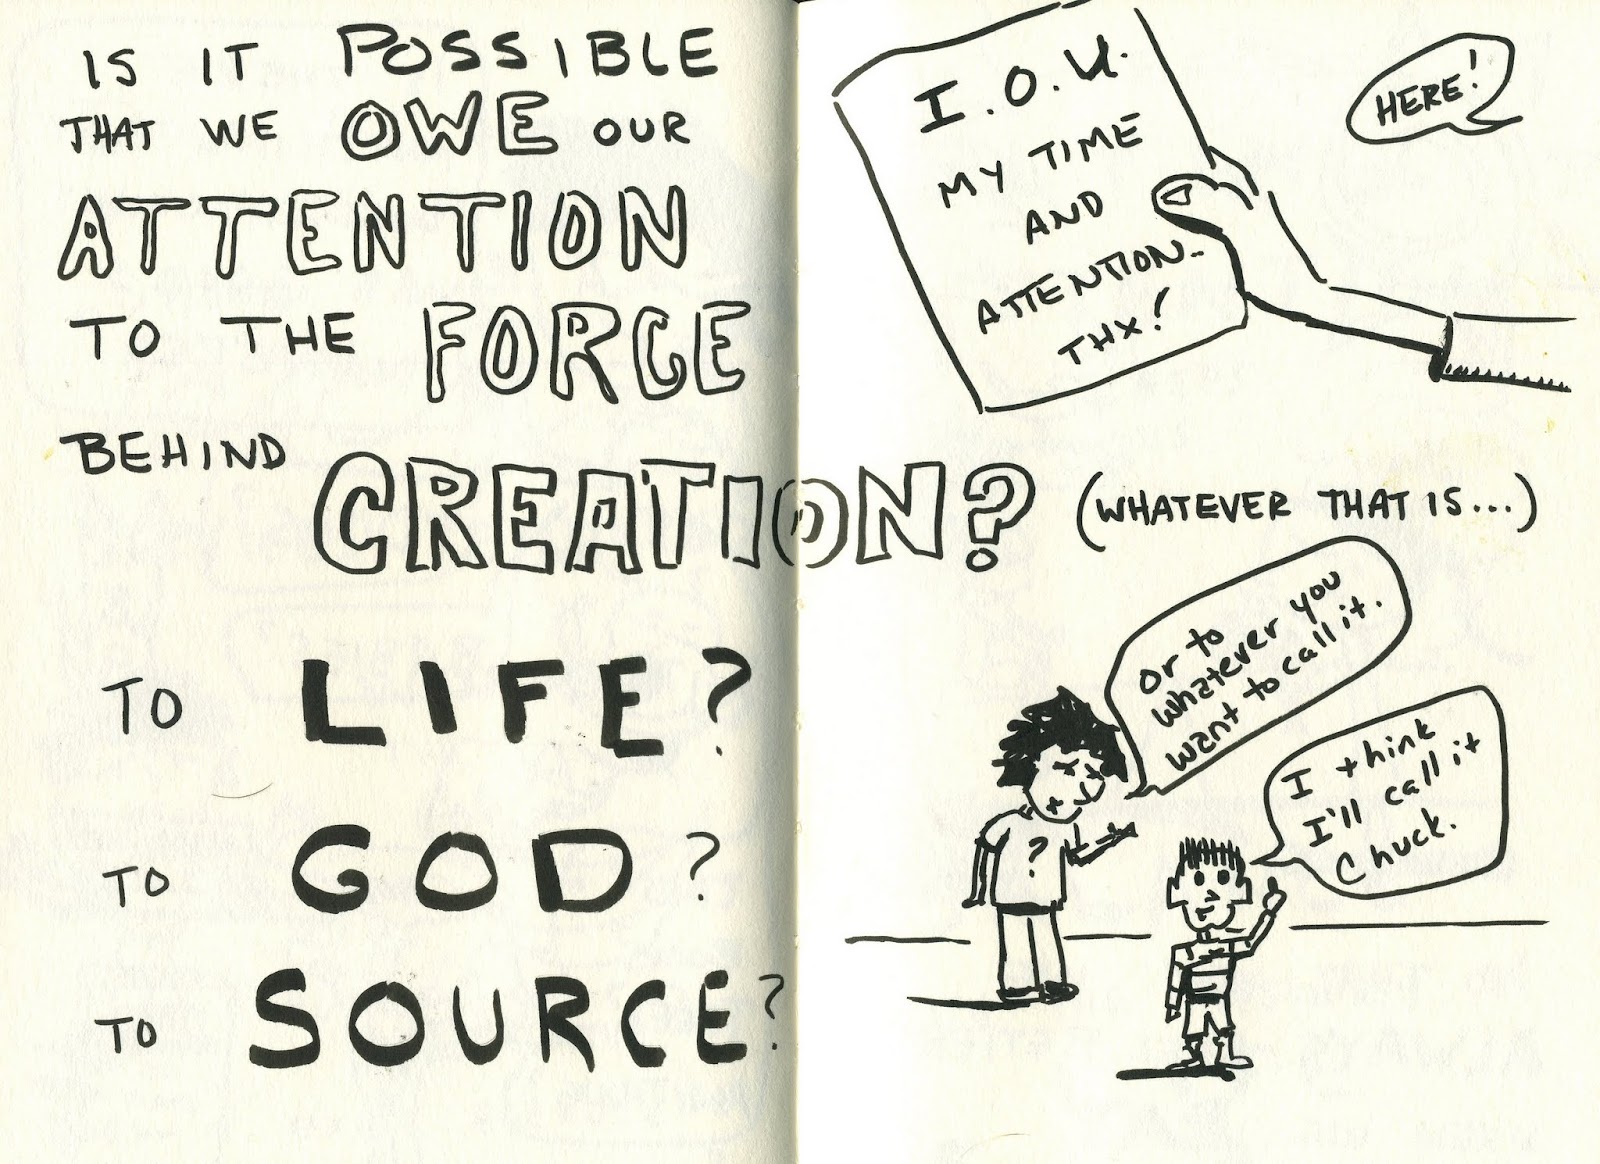 IS IT POSSIBLE
THAT WE OWE OUR
ATTENTION
TO THE FORCE
BEHIND CREATION? (WHATEVER THAT IS...)
TO LIFE?
TO GOD?
TO SOURCE?
I.O.U.
MY TIME
AND
ATTENTION.
THX!
HERE!
Or to
whatever you
want to call it.
?
I think
I'll call it
Chuck.